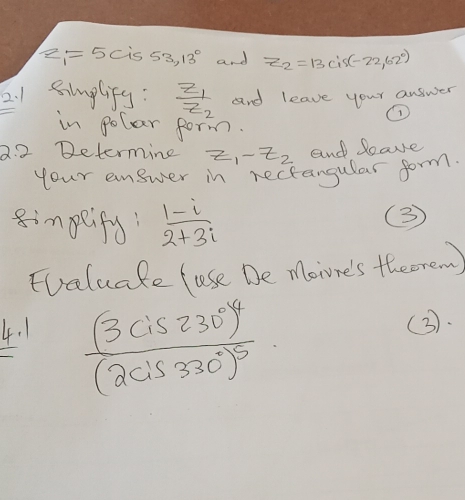 z₁= 5cis 53,13° and z₂=13cis(-22,62°)
2.1 Simplify: z₁/z₂ and leave your answer
in polar form. (1)
2.2 Determine z₁-z₂ and leave
your answer in rectangular form.
Simplify: (1-i)/(2+3i) (3)
Evaluate (use De Moivre's theorem)
4.1 (3 cis 230°)⁴/(2cis 330°)⁵ . (3).